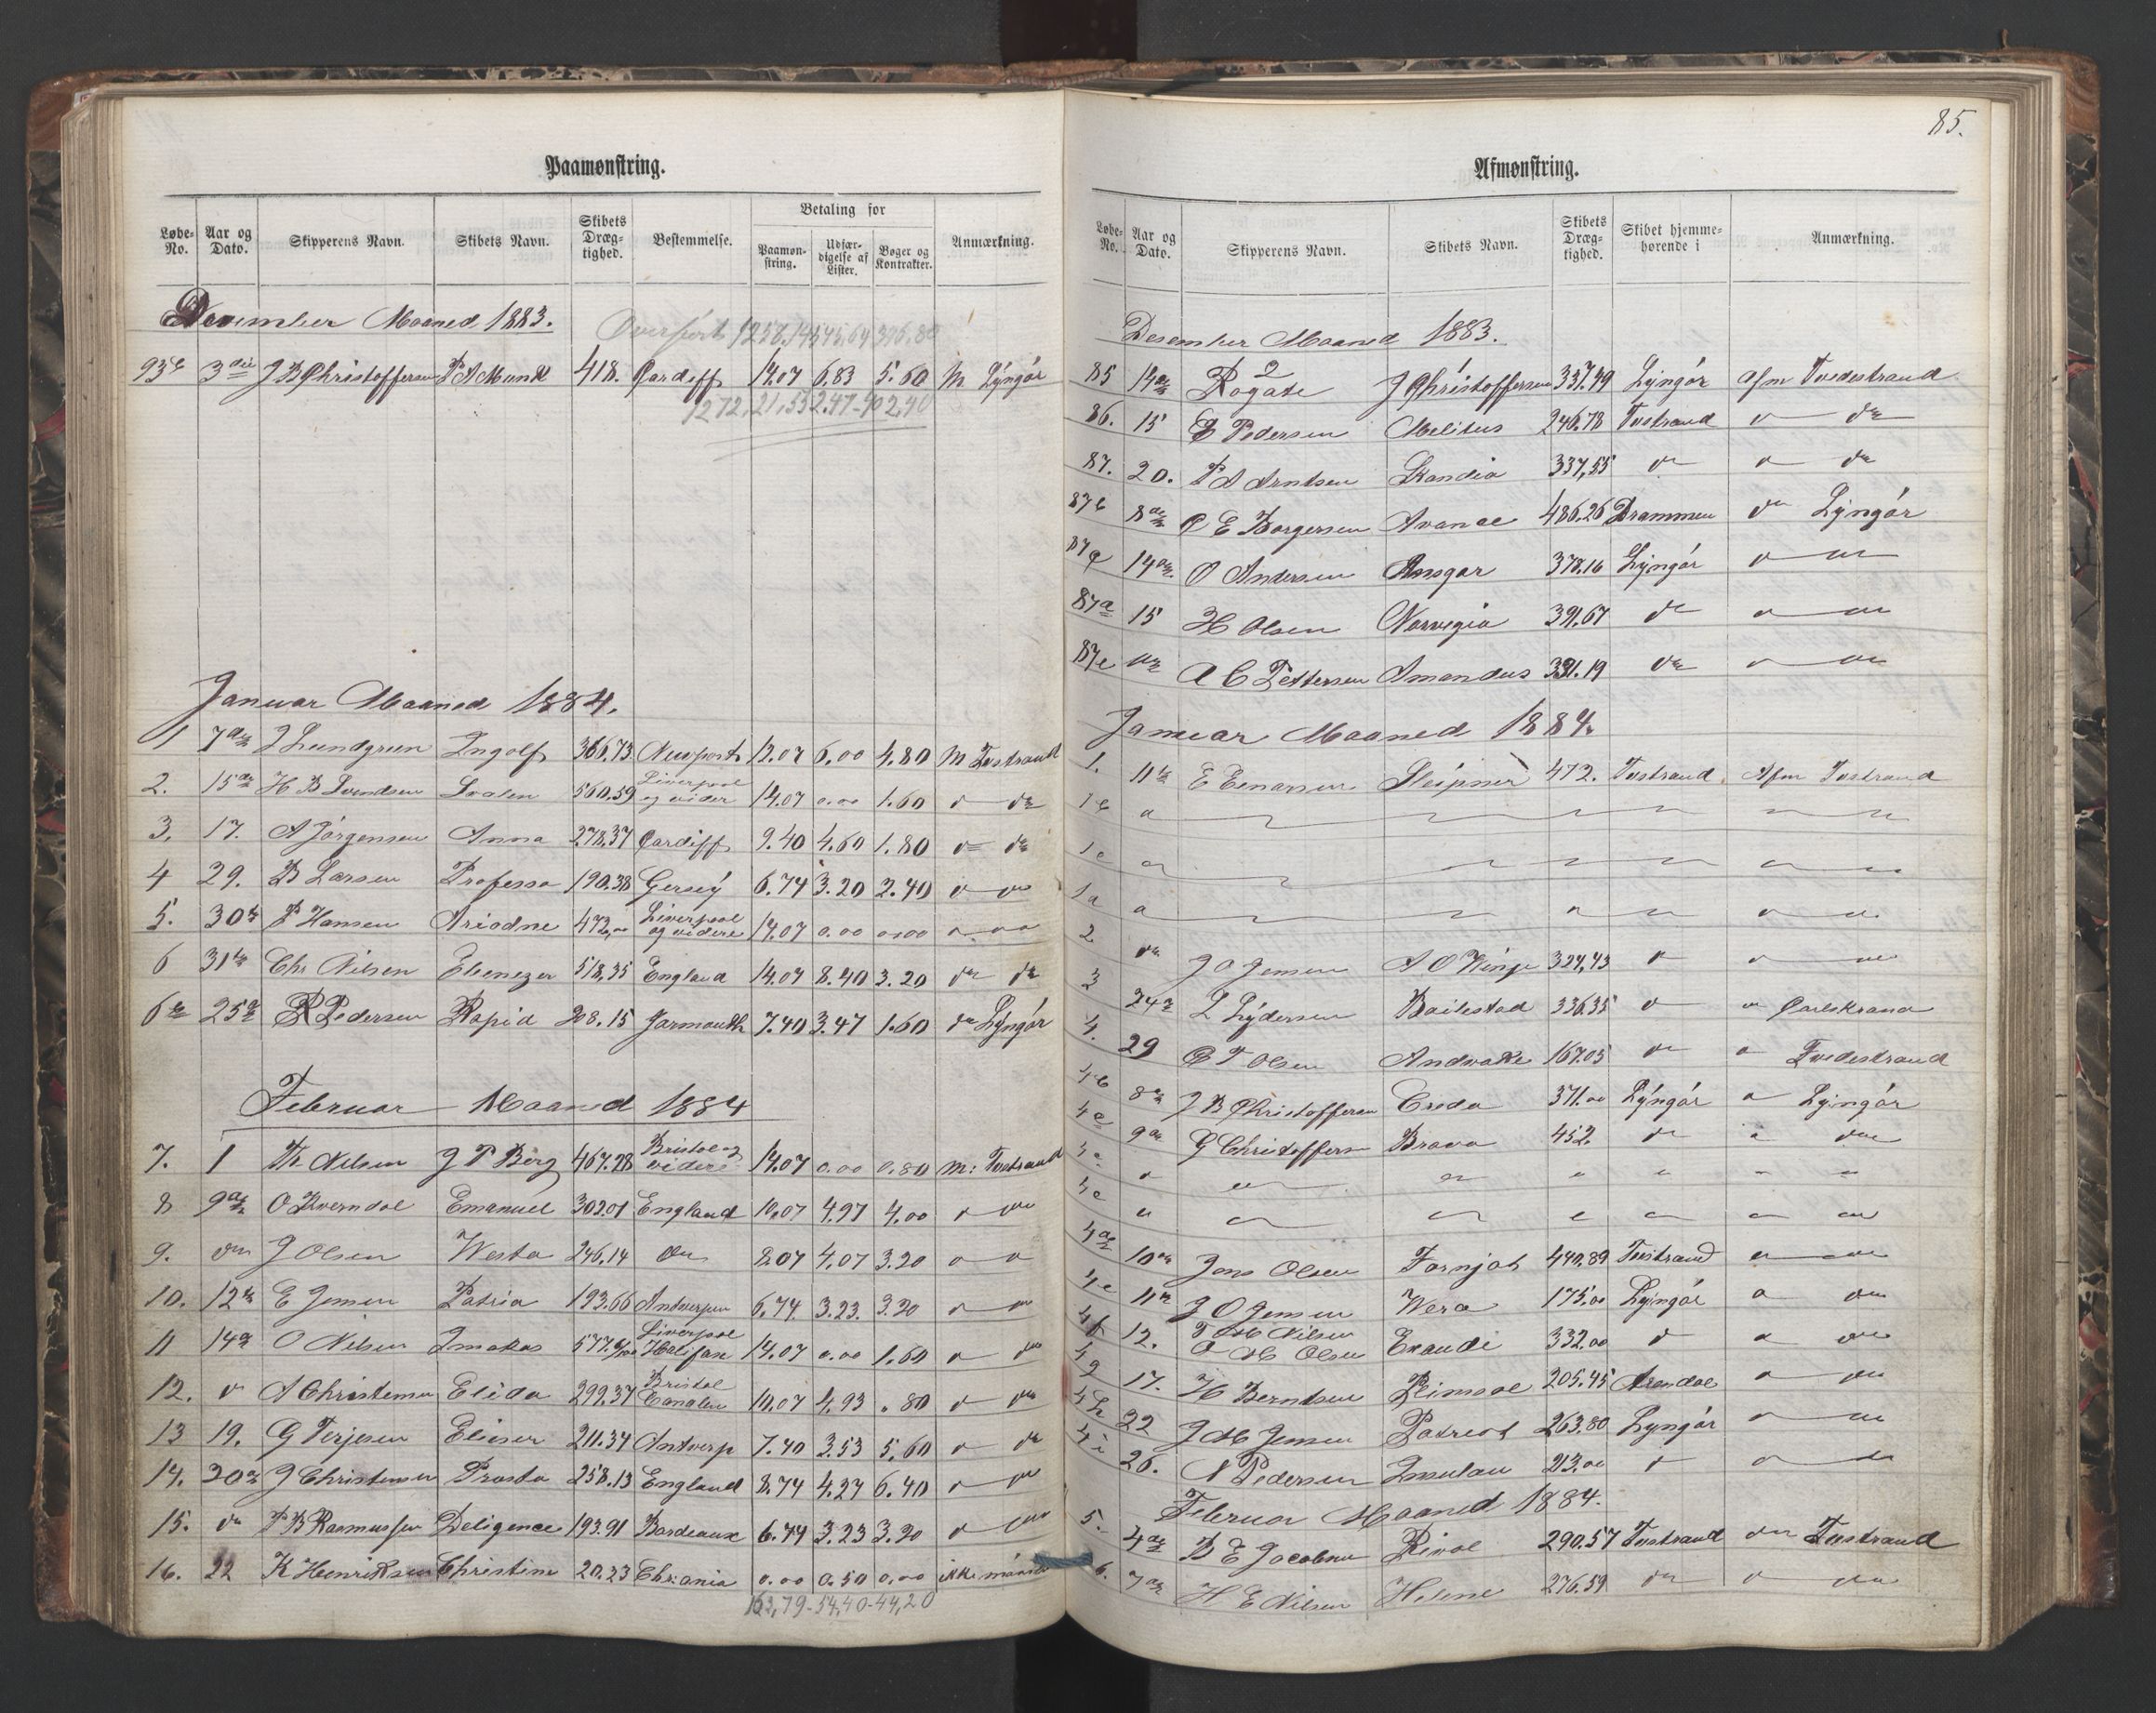 Paamønstring.
Løbe-No. Aar og Dato. Skipperens Navn. Skibets Navn. Skibets Dræg-tighed. Bestemmelse. Betaling for Paamøn-string. Udfær-digelse af Lister. Bøger og Kontrakter. Anmærkning.
December Maaned 1883. Overført
93b 3die J B Christoffersen P A Munk 418. Cardiff 14.07 6.83 5.60 M Lyngör
Januar Maaned 1884.
1 7de J Lundgreen Ingolf 366.73 Newport 12.07 6.00 4.80 M Tvstrand
2. 15de H B Svendsen Svalen 560.59 Liverpool og vider 14.07 0.00 1.60 " do
3. 17. A Jörgensen Anna 278.37 Cardiff 9.40 4.60 1.80 do do
4 29. B Larsen Professo 190.38 Gersey 6.74 3.20 2.40 " do
5. 30te P Hansen Ariadne 472,00 Liverpool og videre 14.07 0.00 0.00 " "
6 31te Chr Nilsen Ebenezer 518,35 England 14.07 8.40 3.20 do do
6b 25de R Pedersen Rapid 208.15 Jarmouth 7.40 3.47 1.60 do Lyngör
Februar Maaned 1884
7. 1 Th Nilsen J P Berg 467.28 Bristol og videre 14.07 0.00 0.80 M: Tvstrand
8 9de O Kverndal Emanuel 302.01 England 10,07 4,97 4,00 " do
9. do J Olsen Westa 246,14 do 8.07 4,07 3.20 " "
10. 12te E Jensen Patria 193.66 Antverpen 6,74. 3.23. 3.20 " do
11 14de O Nilsen 577.9/100 Liverpool Halifax 14.07 0.00 1.60 " do
12. do A Christensen Elida 299.37 Bristol Canalen 10,07 4,93 .80 " do
13 19. G Terjesen Elieser 211.34 Antverp 7.40 3.53 5,60 " do
14. 20de J Christensen Prosta 258.13 England 8.74 4.27 6.40 " do
15. do P B Rasmussen Deligence 193.91 Bordeaux 6.74 3.23 3.20 " do
16. 22 K Henriksen Christine 20.23 Chrania 0.00 0.50 0.00 ikke
162,79-54,40-44,20
85.
Afmønstring.
Løbe-No. Aar og Dato. Skipperens Navn. Skibets Navn. Skibets Dræg-tighed. Skibet hjemme-hørende i Anmærkning.
Desember Maaned 1883.
85 14de Rogate J Christoffersen 337.49 Lyngör Afm Tvedestrand
86. 15 E Pedersen Melitus 246.78 Tvstrand " do
87. 20. P A Arntsen Skandia 337,55 do " do
87b 8de O E Borgersen Avance 486.26 Drammen do Lyngör
87c 14de O Andersen Ansgar 378.16 Lyngör " do
87d 15 H Olsen Norvegia 391.67 do " do
87e do A C Pettersen Amandus 331.19 do " do
Januar Maaned 1884.
1. 11te E Evensen Sleipner 472. Tvstrand Afm Tvstrand
1b "
1c "
1d "
2 do J O Jensen A O Vinje 324,43 " " do
3 24de L Lydersen Bailestad 336.35 " " Carlskrona
4. 29 O T Olsen Andvake 167.05 do " Tvedestrand
4b 8de J B Christoffersen Creda 371.00 Lyngör " Lyngör
4c 9de G Christoffersen Brava 452. do " do
10de Jens Olsen Fornjot 449,89 Tvstrand " do
4e 11te J O Jensen Wera 175.00 Lyngör " do
4f 12. T M Nilsen O M Olsen Exaudi 332.00 " " do
4g 17. H Berntsen Reinsol 205.45 Arendal " do
4h 22 J M Jensen Patriot 263.80 Lyngör " do
4i 26. N Pedersen Insulan 213.00 " " do
Februar Maaned 1884.
5. 4de B E Jacobsen Rival 290.57 Tvstrand do Tvstrand
6. 7de H E Nilsen Helene 276.59 do " do